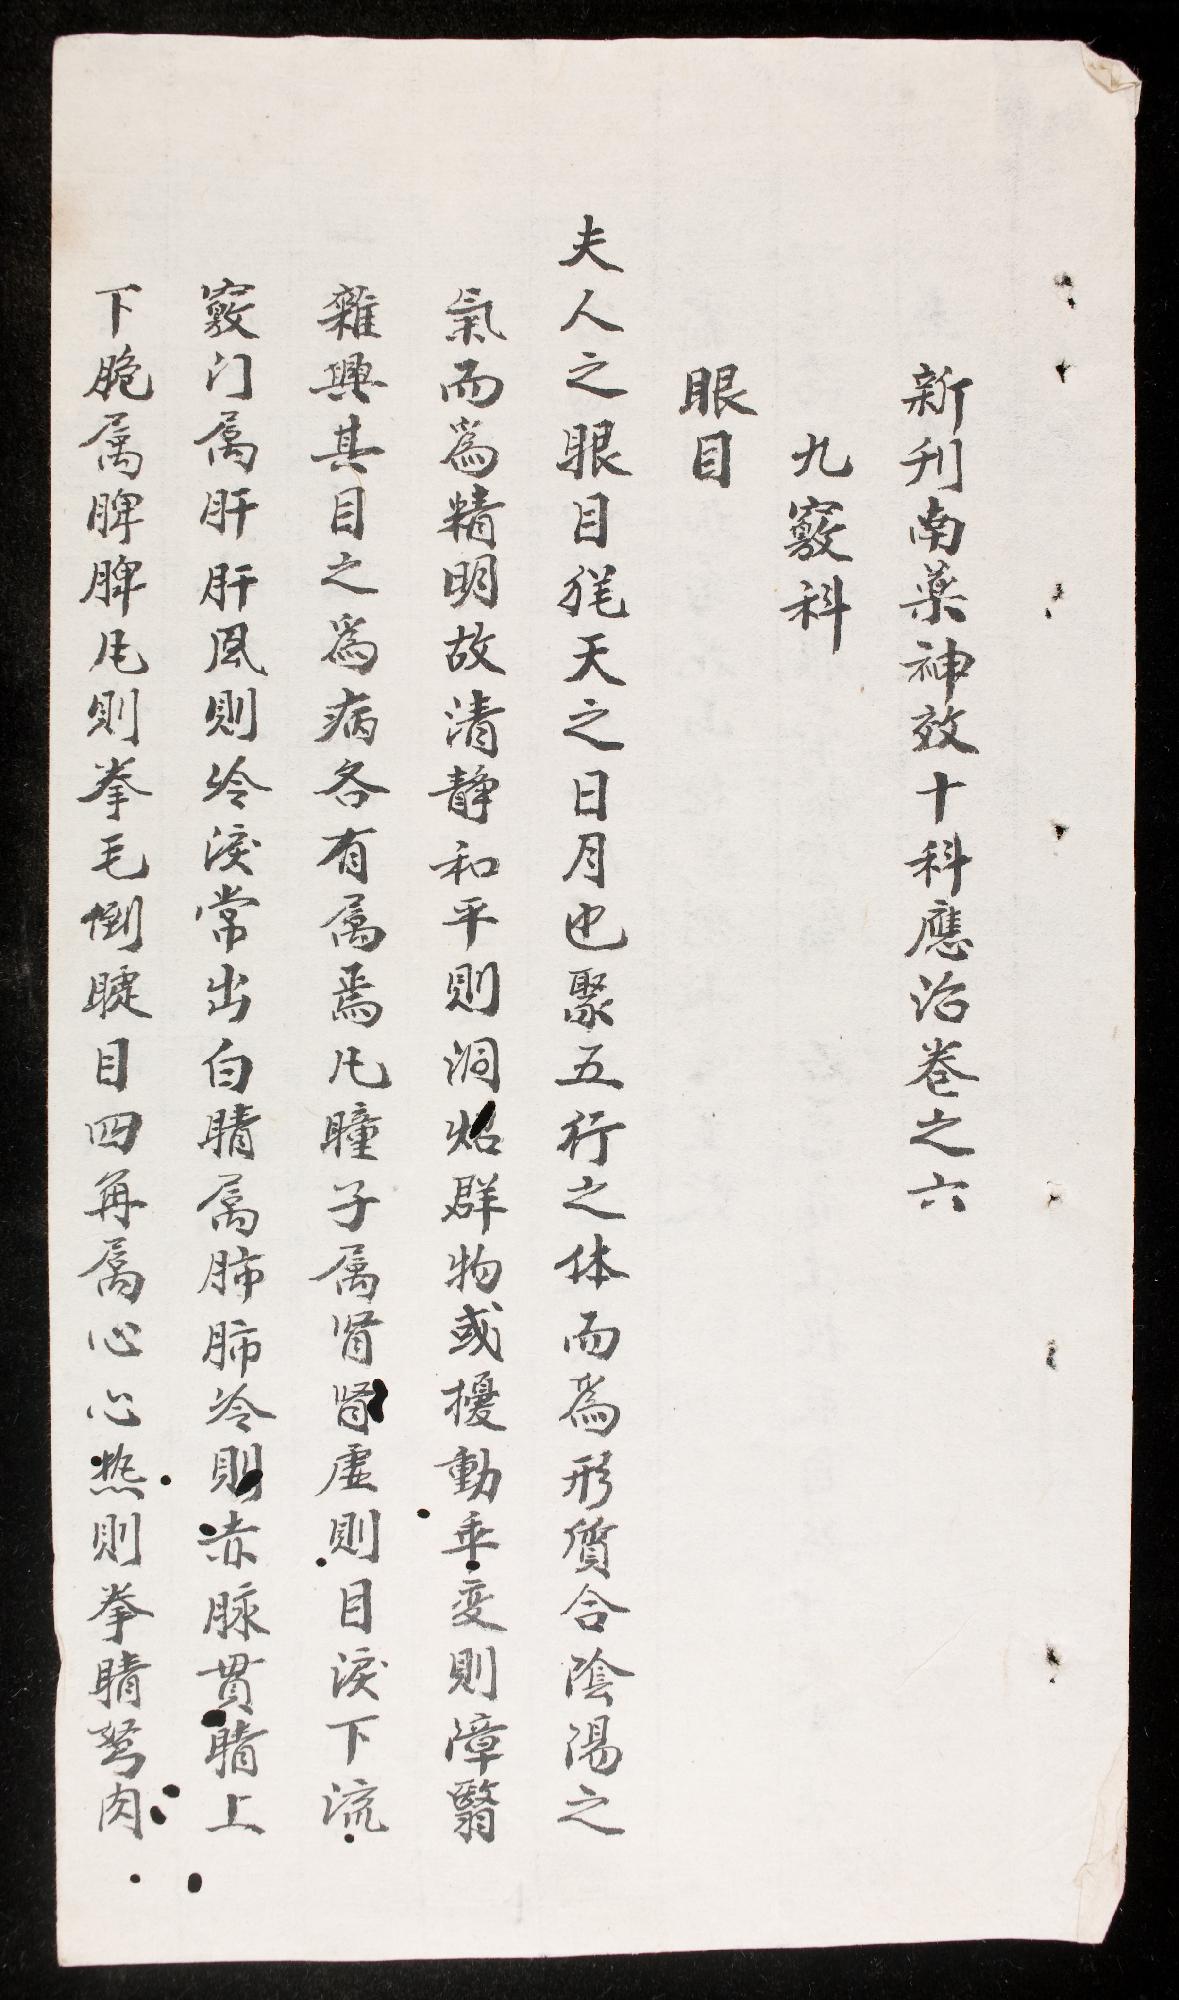 新刊南藥神效十科應治卷之六
九竅科
眼目
夫人之眼目猶天之日月也聚五行之体而為形質合陰陽之
氣而為精明故清静和平則洞炤群物或擾動乖变則漳翳
雜興其目之為病各有属焉凢瞳子属肾肾虚則目淚下流
竅门属肝肝風則冷淚常出白睛属肺肺冷則赤脉貫睛上
下脆属脾脾凢則拳毛倒睫目四再属心心热則拳睛弩肉